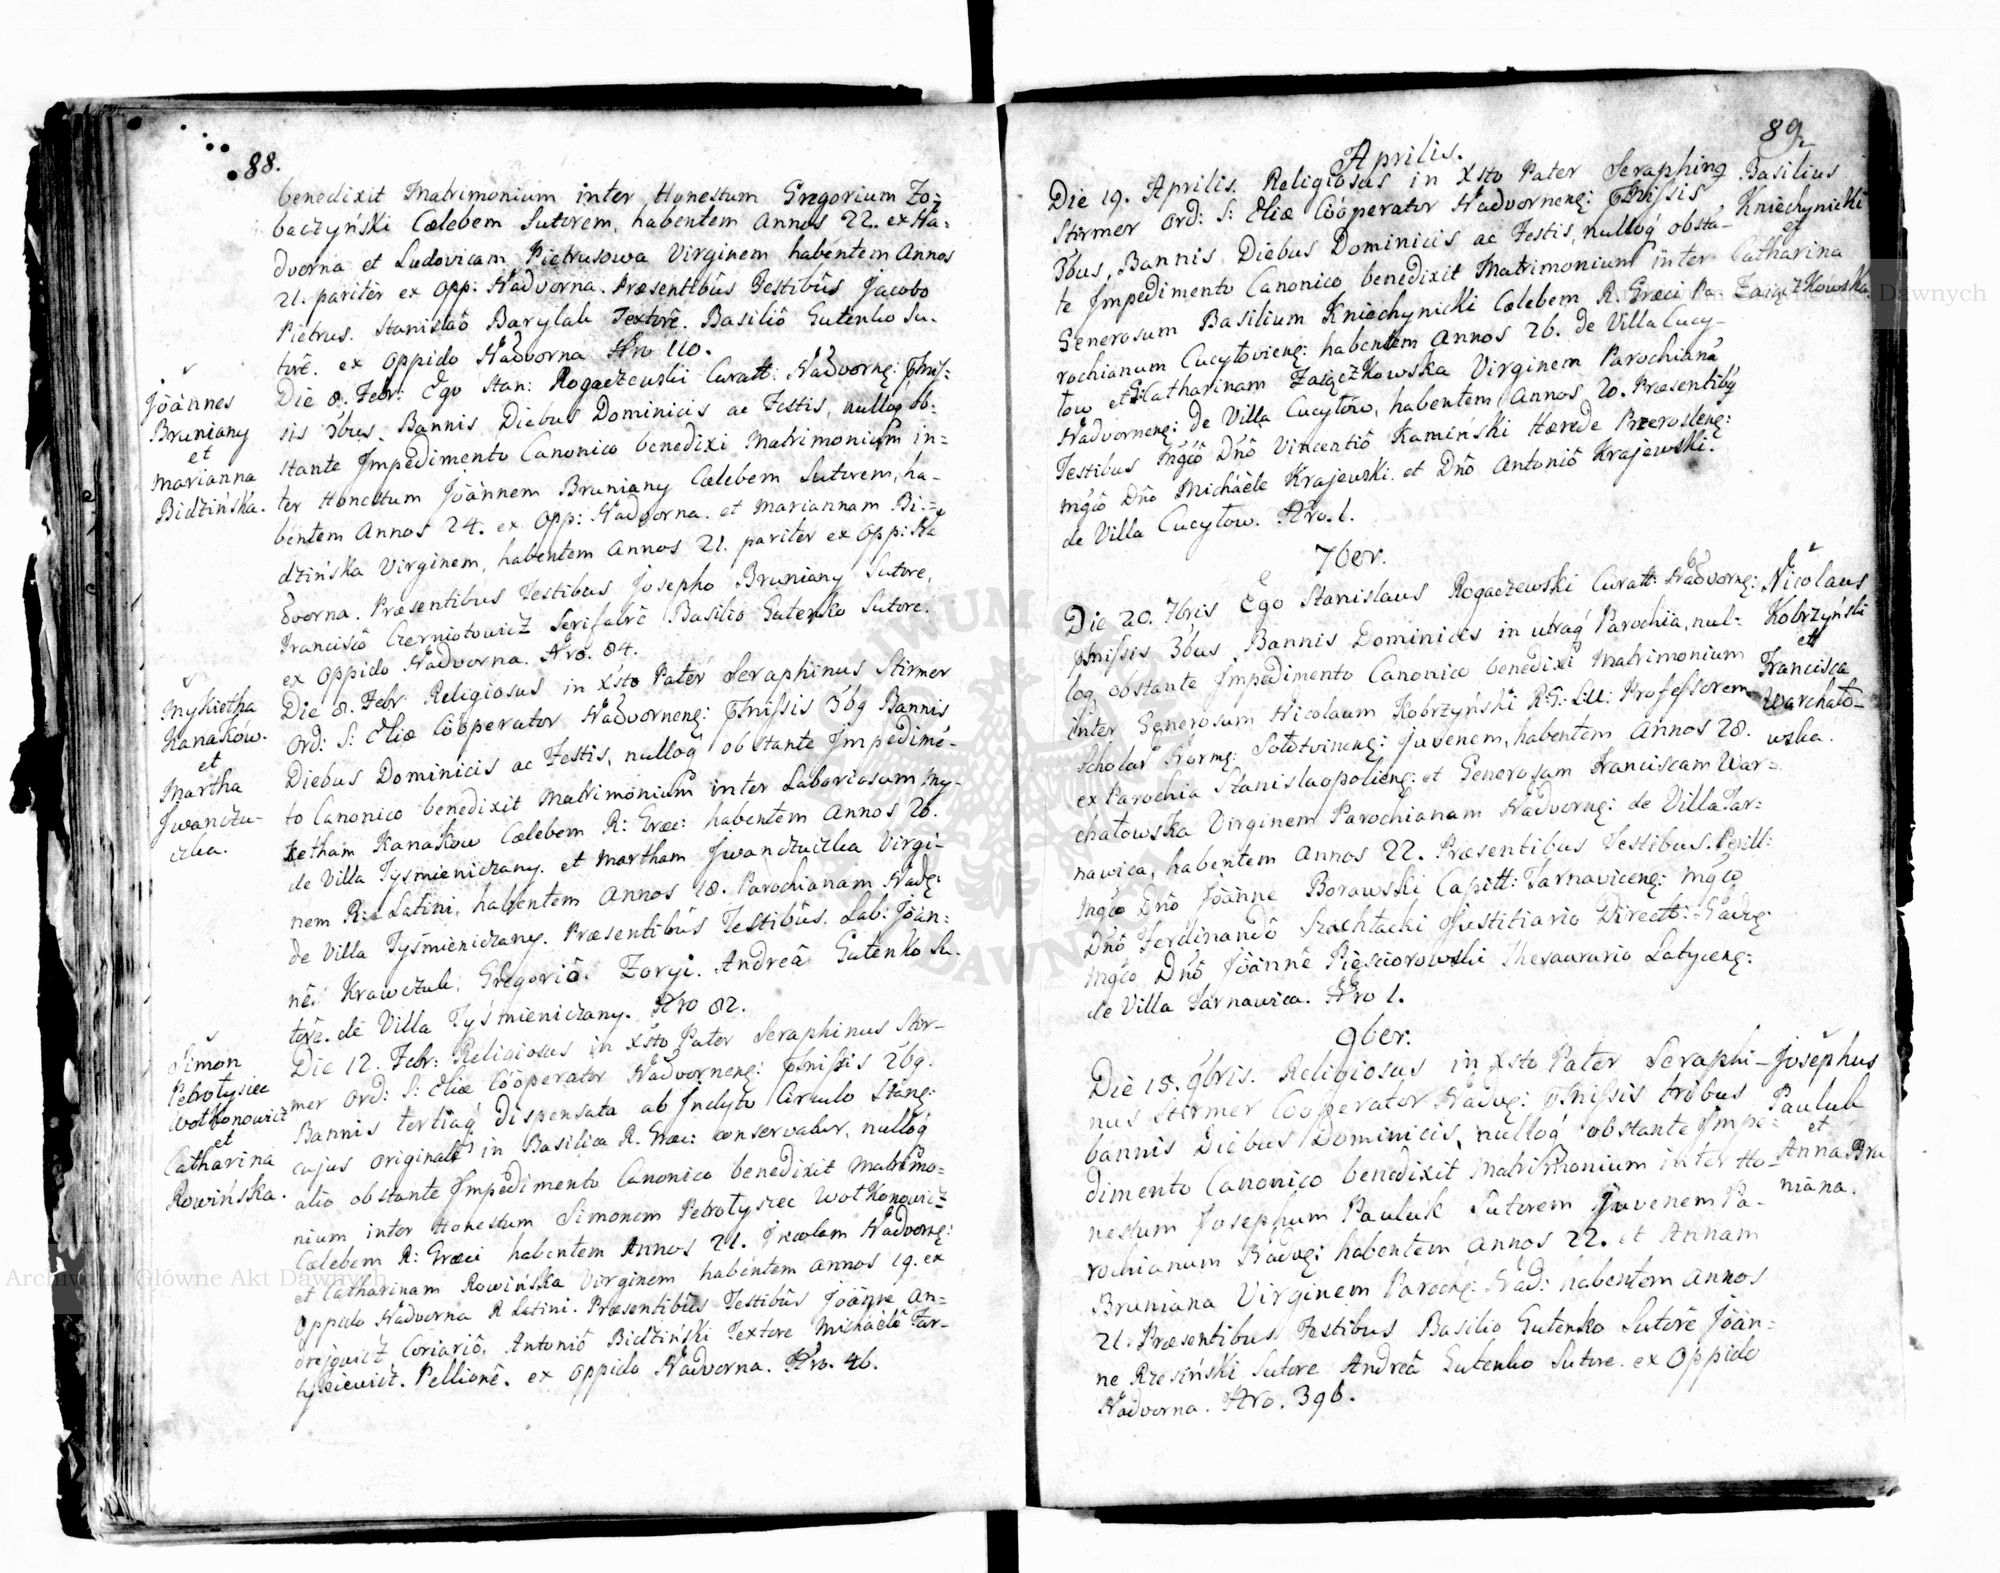 88.
benedixit Matrimonium inter Honestum Gregorium Zo=
baczyński Cælebem Sutorem, habentem Annos 22. ex Na=
dvorna et Ludovicam Pietrusowa Virginem habentem Annos
21. pariter ex Opp: Nadvorna. Præsentibûs Testibûs Jacobo
Pietrus. Stanislaô Barylak Textorê. Basiliô Gutenko Su-
torê. ex Oppido Nadvorna Nro 110.
Joannes
Bruniany
et
Marianna
Bidzińska.
Die 8. Febr: Ego Stan: Rogaczewski Curatt: Nadvorn: Pmis=
sis 3bus Bannis Diebus Dominicis ac Festis, nulloq ob=
stante Impedimento Canonico benedixi Matrimonium in=
ter Honestum Joannem Bruniany Cælebem Sutorem, ha-
bentem Annos 24. ex Opp: Nadvorna. et Mariannam Bi=
dzińska Virginem, habentem Annos 21. pariter ex Opp: Na
dvorna. Præsentibus Testibus Josepho Bruniany Sutore,
Francisco Czerniotowicz Serifabrê Basilio Gutenko Sutore.
ex Oppido Nadvorna. Nro. 84.
Mykietha
Kanaków.
et
Martha
Jwanczu-
czka.
Die 8. Febr Religiosus in Xsto Pater Seraphinus Stirmer
Ord: S: Eliæ Cooperator Nadvornen: Pmissis 3bq Bannis
Diebus Dominicis ac Festis, nulloq obstante Impedimē-
to Canonico benedixit Matrimonium inter Laboriosum My-
kietham Kanaków Cælebem R: Græc: habentem Annos 26.
de Villa Tyśmieniczany. et Martham Jwanczuczka Virgi-
nem R: Latini, habentem Annos 18. Parochianam Nadv:
de Villa Tyśmieniczany. Præsentibûs Testibûs. Lab: Joan=
nê Krawczuk, Gregoriô Zoryi. Andreâ Gutenko Su-
torê. de Villa Tyśmieniczany. Nro 82.
Simon
Petrotysiec
Wotkonowicz
et
Catharina
Rowińska.
Die 12. Febr: Religiosus in Xsto Pater Seraphinus Stir-
mer Ord: S: Eliæ Cooperator Nadvornen: Pmissis 2bq.
Bannis tertiaq dispensata ab Jnclyto Circulo Stan:
cujus originale in Basilica R. Græc: conservatur, nulloq
alio obstante Jmpedimento Canonico benedixit Matrimo=
nium inter Honestum Simonem Petrotysiec Wotkonowicz
Cælebem R: Græci habentem Annos 21. Jncolam Nadvorn:
et Catharinam Rowińska Virginem habentem Annos 19. ex
Oppido Nadvorna R Latini. Præsentibûs Testibûs Joanne An=
drejowicz Coriariô. Antoniô Bidziński Textore Michaelê Tar-
tysiewicz. Pellionê. ex Oppido Nadvorna. Nro. 46.
89.
Aprilis.
Die 19. Aprilis. Religiosus in Xsto Pater Seraphinq
Stirmer Ord: S: Eliæ Cooperator Nadvornen: Pmissis
3bus, Bannis Diebus Dominicis ac Festis, nulloq obsta-
te Jmpedimento Canonico benedixit Matrimonium inter
Generosum Basilium Kniechynicki Cælebem R. Græci Pa-
rochianum Cucyłovien: habentem Annos 26. de Villa Cucy-
łow et Catharinam Zaiączkowska Virginem Parochianā
Nadvornen: de Villa Cucyłów, habentem Annos 20. Præsentibq
Testibus Mgcô Dnô Vincentiô Kamiński Hærede Przeroslen:
Mgcô Dno Michaele Krajewski. et Dnô Antoniô Krajewski.
de Villa Cucyłow. Nro. 1.
Basilius
Kniechynicki
et
Catharina
Zaiączkowska
7ber.
Die 20. 7bris Ego Stanislaus Rogaczewski Curatt: Nadvorn:
Pmissis 3bus Bannis Dominicis in utraq Parochia, nul=
loq obstante Jmpedimento Canonico benedixi Matrimonium
inter Generosum Nicolaum Kobrzyński R: G: LLL: Professorem
Scholar Norm: Sołotvinen: Juvenem, habentem Annos 28.
ex Parochia Stanislaopolien: et Generosam Franciscam War=
chałowska Virginem Parochianam Nadvorn: de Villa Tar=
nawica, habentem Annos 22. Præsentibus Testibus. Perill:
Mgco Dnô Joanne Borawski Capitt: Tarnavicen: Mgco
Dnô Ferdinandô Szachłacki Justitiario Direct: Nadv:
Mgco Dnô Joannê Pięściorowski Thesaurario Latycen:
de Villa Tarnawica. Nro 1.
Nicolaus
Kobrzyński
et
Francisca
Warchało-
wska.
9ber.
Die 15. 9bris. Religiosus in Xsto Pater Seraphi-
nus Stirmer Cooperator Nadv: Pmissis tribus
bannis Diebus Dominicis, nulloq obstante Jmpe=
dimento Canonico benedixit Matrimonium inter Ho-
nestum Josephum Pauluk Sutorem Juvenem Pa-
rochianum Nadv: habentem Annos 22. et Annam
Bruniana Virginem Paroch: Nad: habentem Annos
21. Præsentibus Testibus Basilio Gutenko Sutorê Joan=
ne Rzesiński Sutore Andreâ Gutenko Sutore. ex Oppido
Nadvorna. Nro. 396.
Josephus
Pauluk
et
Anna Bru
niana.
Archiwum Główne Akt Dawnych